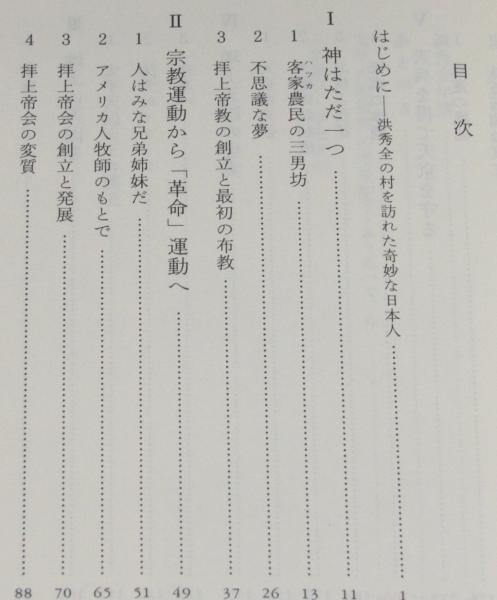 目次
はじめに――洪秀全の村を訪れた奇妙な日本人……1
Ⅰ 神はただ一つ……11
1 客家農民の三男坊……13
ハッカ
2 不思議な夢……26
3 拝上帝教の創立と最初の布教……37
Ⅱ 宗教運動から「革命」運動へ……49
1 人はみな兄弟姉妹だ……51
2 アメリカ人牧師のもとで……65
3 拝上帝会の創立と発展……70
4 拝上帝会の変質……88